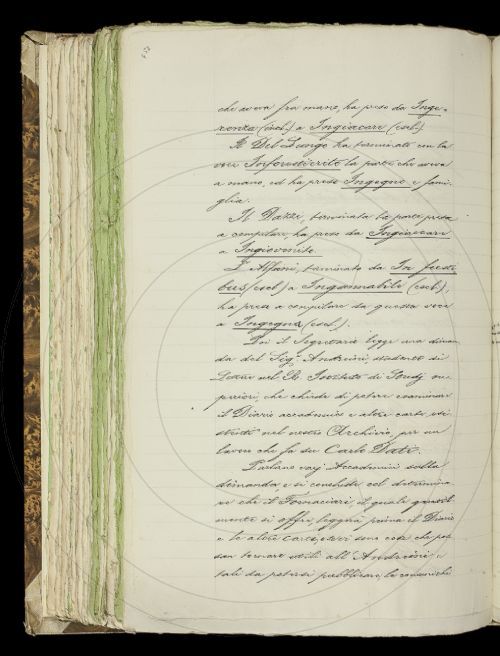 che aveva fra mano, ha preso da Inge-
renza (escl.) a Ingiacare (escl.)
Il Del Lungo ha terminato con la
voce Inforestierito la parte che aveva
a mano, ed ha preso Ingegno e fami-
glia.
Il Dazzi, terminata la parte presa
a compilare, ha preso da Ingiaccare
a Ingiovenite.
L'Alfani, terminato da In facti
bus (escl.) a Ingannabile (escl.),
ha preso a compilare da questa voce
a Ingegna (escl.).
Poi il Segretario legge una diman
da del Sig.r Andreini, studente di
Lettere nel R. Istituto di Studj su-
periori, che chiede di potere esaminare
il Diario accademico e altre carte, esi-
stenti nel nostro Archivio, per un
lavoro che fa su Carlo Dati.
Parlano varj Accademici sulla
dimanda e si conclude col determina-
re che il Fornaciari, il quale gentil-
mente si offre, leggerà prima il Diario
e le altre carte, e se vi sono cose che pos-
san tornare utili all'Andreini e
tali da potersi pubblicare, le comunichi